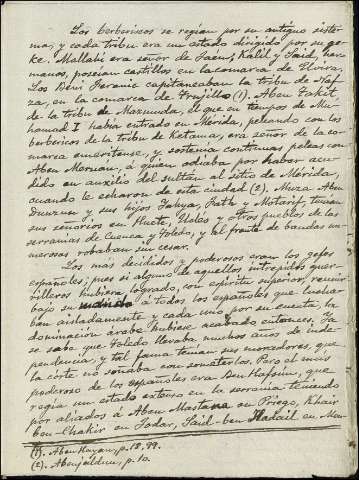 Los berberiscos se regían por su antiguo siste-
ma, y cada tribu era un estado dirigido por su ge-
fe. Mallahi era señor de Jaen; Kalil y Said, her-
manos, poseian castillos en la comarca de Elvira.
Los Beni Feranic capitaneaban la tribu de Naf-
za, en la comarca de Trujillo (1). Aben Takit
de la tribu de Masmuda, el que en tiempos de Mu-
hamad I habia entrado en Mérida, peleando con los
berberiscos de la tribu de Ketama, era señor de la co-
marca emeritense, y sostenia continuas peleas con
Aben Meruan, á quien odiaba por haber acu-
dido en auxilio del sultan al sitio de Mérida,
cuando le echaron de esta ciudad (2). Muza Aben
y sus hijos Yahya, Fath y Motarif, tenian
sus señorios en Huete, Uclés y otros pueblos de las
serranias de Cuenca y Toledo, y al frente de bandas nu-
merosas robaban sin cesar.
Los más decididos y poderosos eran los gefes
españoles; pues si alguno de aquellos intrépidos guer-
rilleros hubiera logrado, con espíritu superior, reunir
bajo su á todos los españoles que luchar-
ban aisladamente y cada uno por su cuenta, la
dominación árabe hubiese acabado entonces. Ya
se sabe que Toledo llevaba muchos años de inde-
pendencia, y tal fama tenian sus moradores, que
la córte no soñaba con someterlos. Pero el más
poderoso de los españoles era Ben Hafsun, que
regia un estado extenso en la serrania teniendo
por aliados á Aben Mastana en Priego, Khair
ben-Chakir en Jodar, Said-ben Hadail en Mon-
(1). Aben Hayan, p. 18, 99.
(2). Abenjaldun, p. 10.